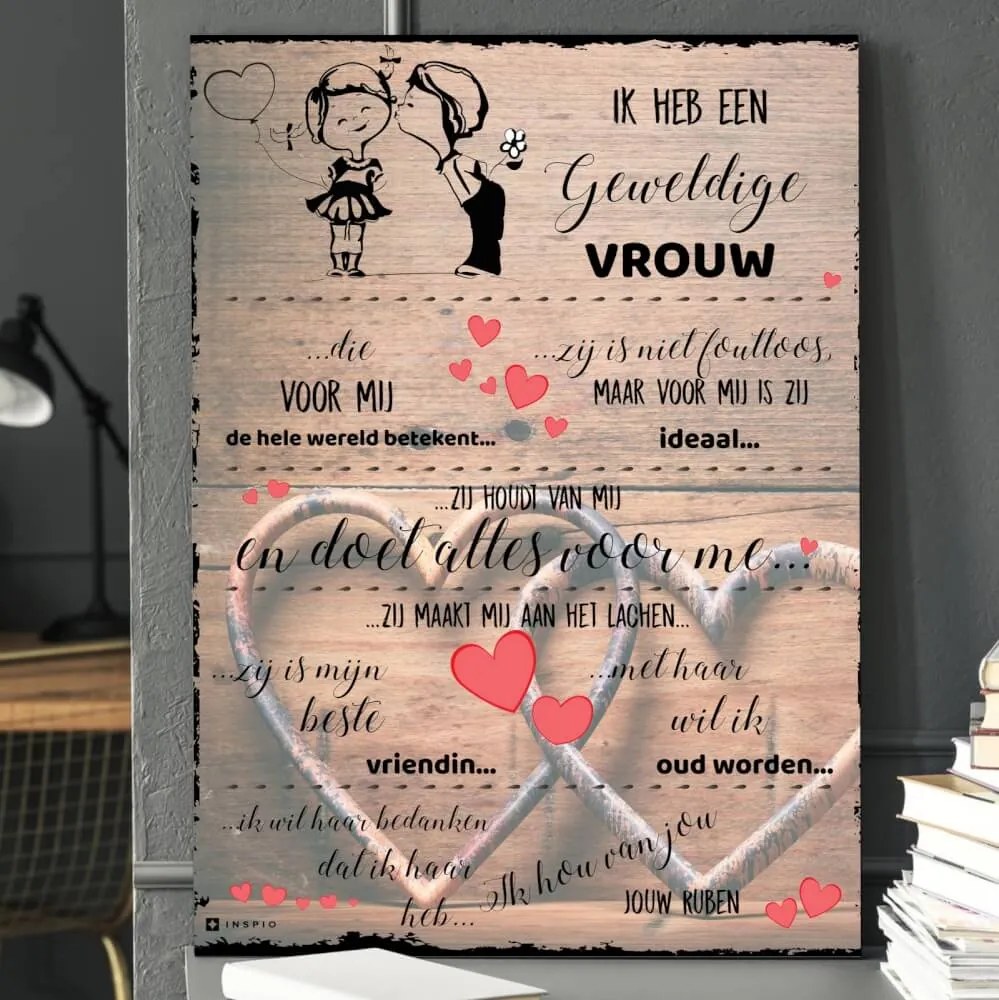 IK HEB EEN
Geweldige
VROUW
...die
VOOR MIJ
de hele wereld betekent...
...zij is niet foutloos,
MAAR VOOR MIJ IS ZIJ
ideaal...
...ZIJ HOUDT VAN MIJ
en doet alles voor me...
...ZIJ MAAKT MIJ AAN HET LACHEN...
...zij is mijn
beste
vriendin...
...met haar
wil ik
oud worden...
...ik wil haar bedanken
dat ik haar
heb...
Ik hou van jou
JOUW RUBEN
INSPIO